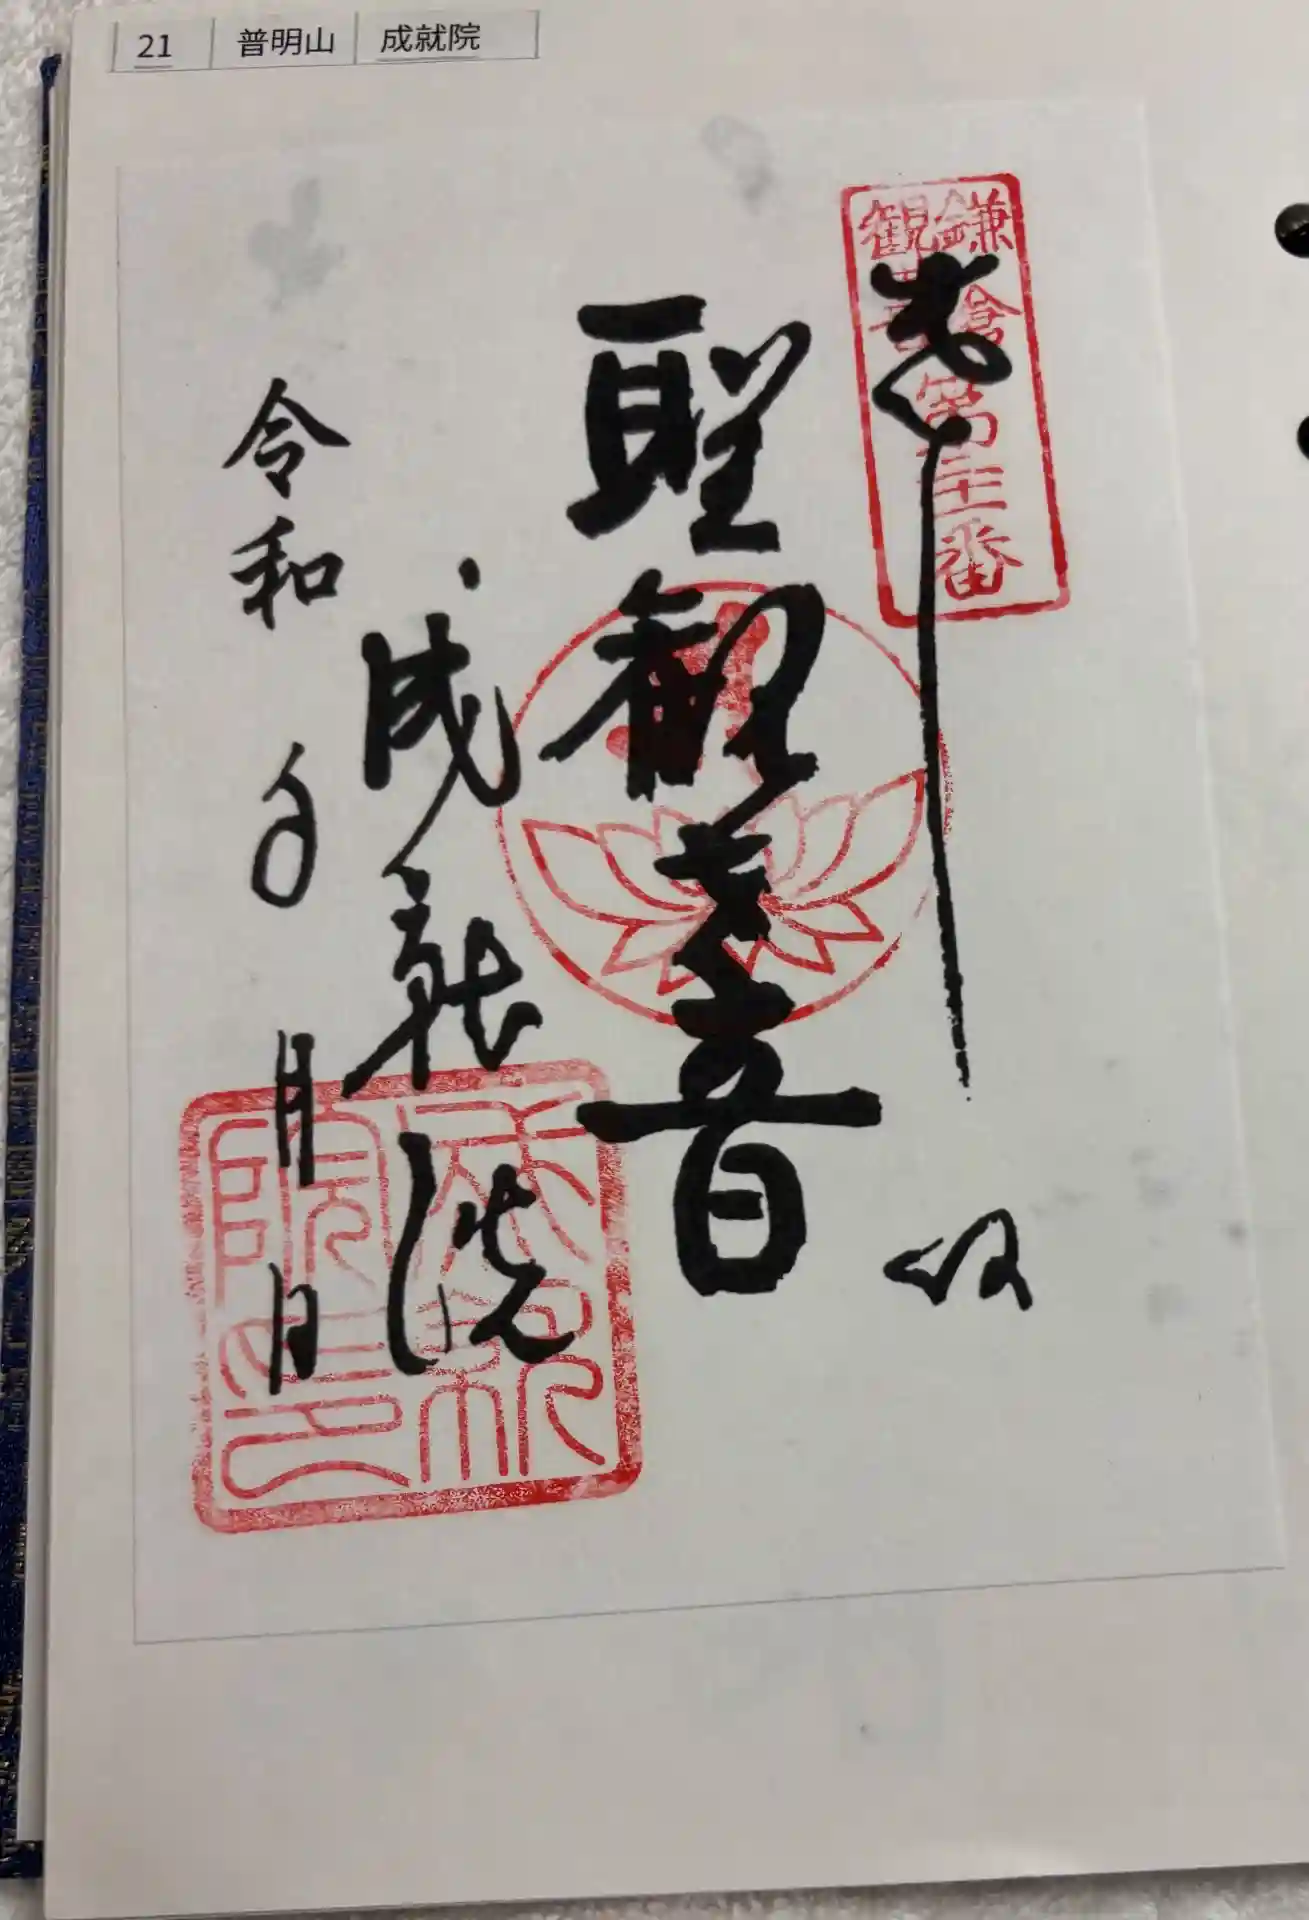 21 普明山 成就院
鎌倉
観音
第廿一番
奉拝
聖観世音
成就院
令和 年 月 日